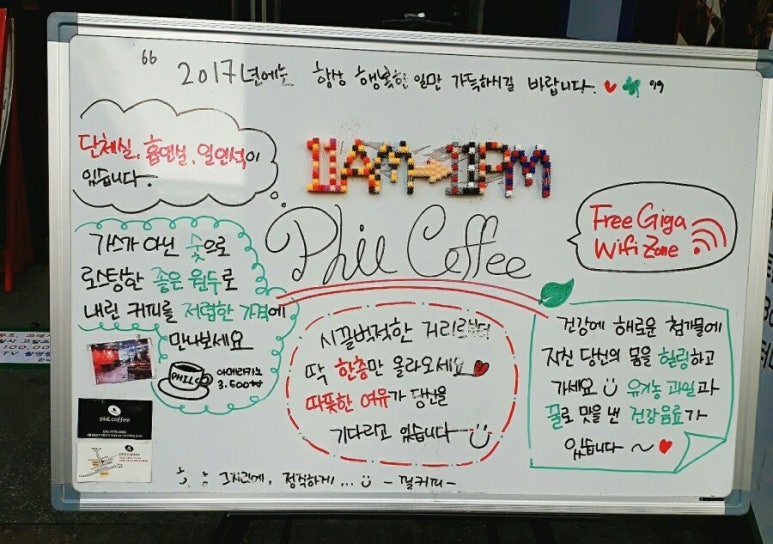 “ 2017년에는 항상 행복한 일만 가득하시길 바랍니다. ”
단체실, 흡연실, 일인석이
있습니다.
11AM→11PM
Phil Coffee
Free Giga
Wifi Zone
가스가 아닌 숯으로
로스팅한 좋은 원두로
내린 커피를 저렴한 가격에
만나보세요
PHIL
아메리카노
3.500₩
시끌벅적한 거리로부터
딱 한층만 올라오세요
따뜻한 여유가 당신을
기다리고 있습니다
건강에 해로운 첨가물에
지친 당신의 몸을 힐링하고
가세요 유기농 과일과
꿀로 맛을 낸 건강음료가
있습니다 ~
PHIL COFFEE
정직하게... -필커피-
100,00